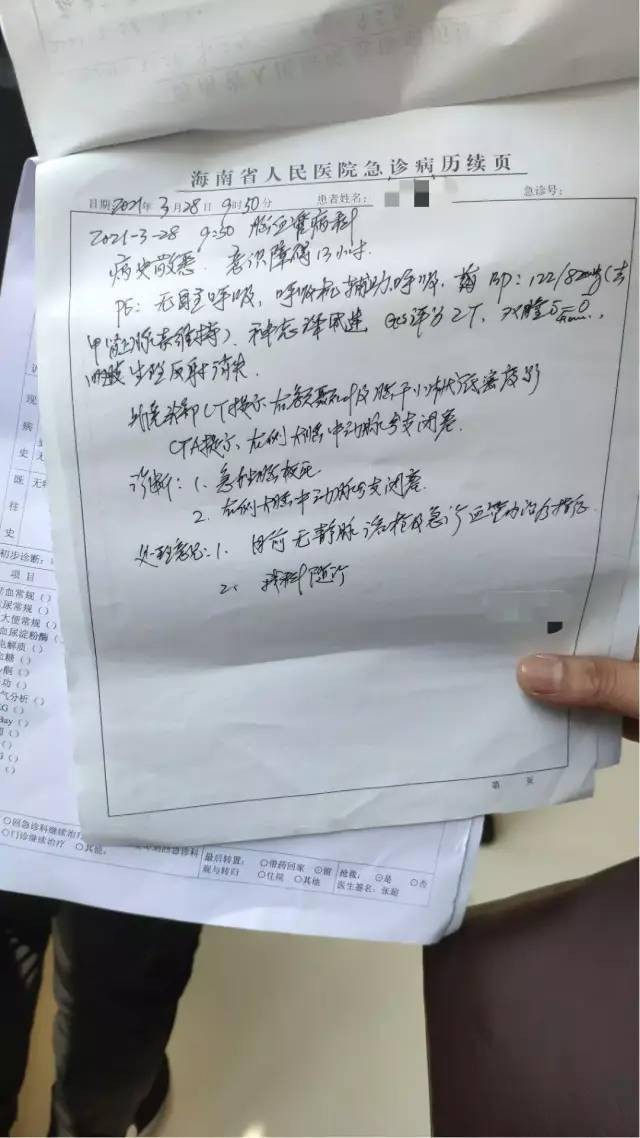 海南省人民医院急诊病历续页
日期2021年3月28日9时50分 患者姓名： 急诊号：
2021-3-28 9:50 脑血管病科
病史敬悉. 意识障碍13小时.
PE: 无自主呼吸, 呼吸机辅助呼吸, BP: 122/82mmHg(去
甲肾上腺素维持). 神志深昏迷 GCS评分2T, 双瞳5=0
生理反射消失.
头部CT提示左额颞叶及脑干小片状低密度影
CTA提示左侧大脑中动脉分支闭塞.
诊断: 1. 急性脑梗死
2. 左侧大脑中动脉分支闭塞.
处理意见: 1. 目前无静脉溶栓及急诊血管内治疗指征
2. 我科随诊
第 页
现
病
史
既
往
史
初步诊断:
项目
血常规（）
尿常规（）
大便常规（）
血尿淀粉酶（）
电解质（）
血糖（）
气分析（）
回急诊科继续治疗
○门诊继续治疗 ○其他,
最后转置: ○带药回家 ○留
规与转归 ○住院 ○其他
抢救: ○是 ○否
医生签名: 张超